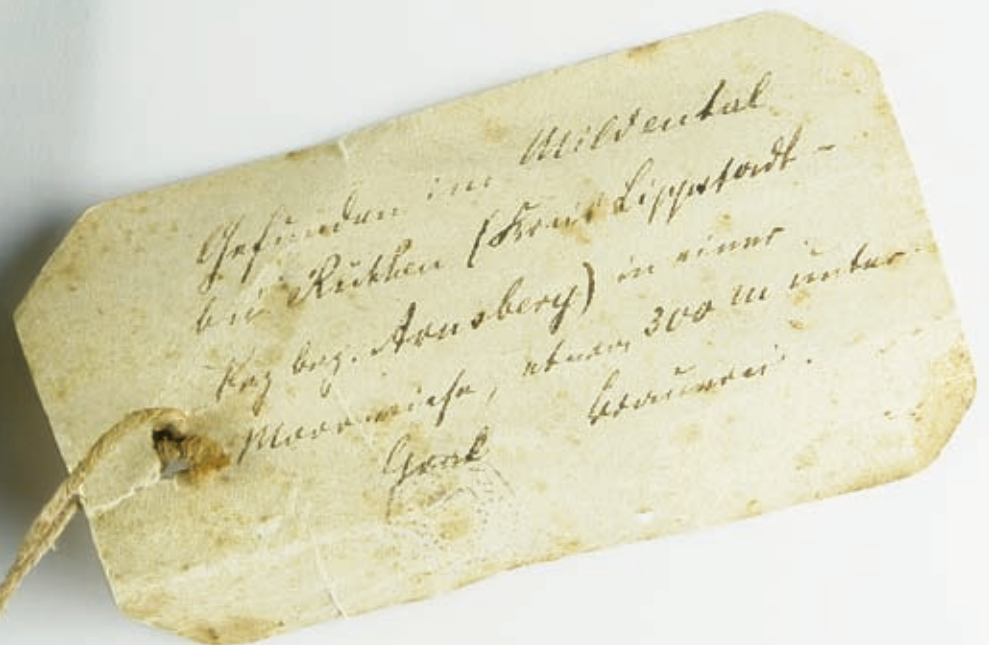 Gefunden im Mildental
bei Rüthen (Kreis Lippstadt -
Reg bez. Arnsberg) in einer
Moorwiese, etwa 300 m unter
Brauerei.